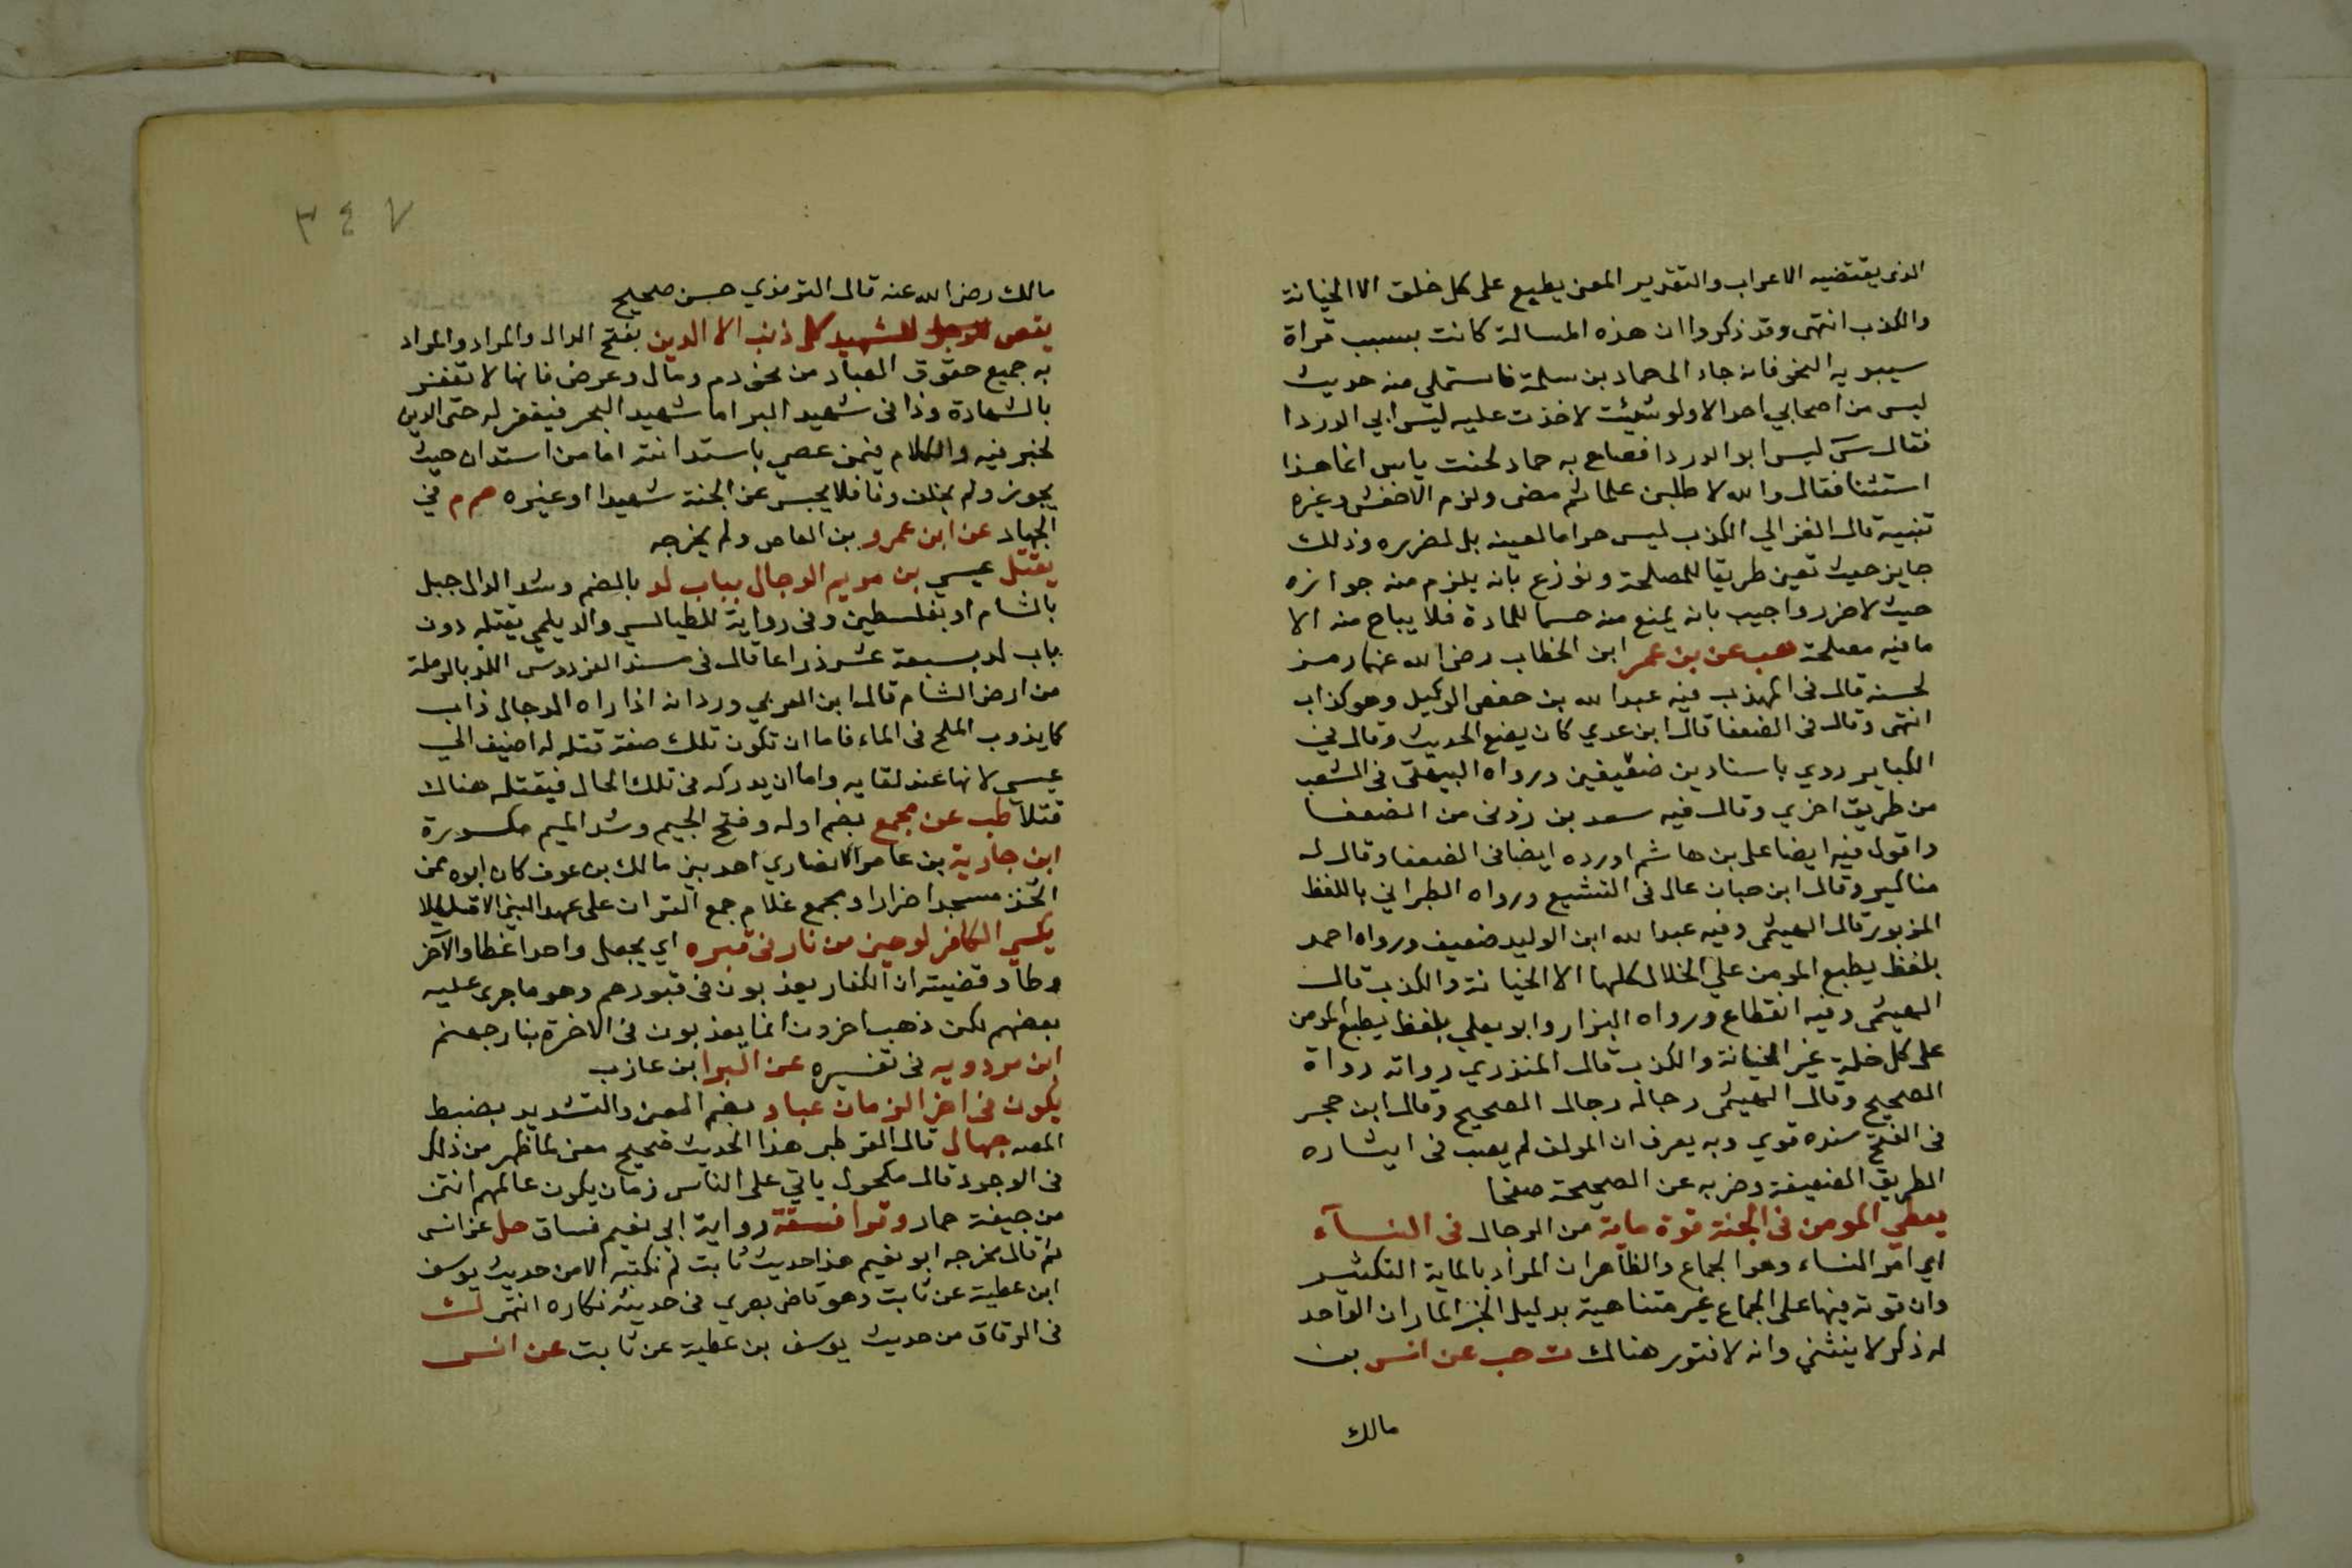 الذى يقتضيه الاعراب والتقدير المعنى يطبع على كل خلق الا الخيانة
والكذب انتهى وقد ذكروا ان هذه المسالة كانت بسبب قراة
سيبويه النحو فانه جاء الى حماد بن سلمة فاستملي منه حديث
ليس من اصحابي احد الا ولو شئت لاخذت عليه ليس ابي الدردا
فقال س ليس ابو الدردا فصاح به حماد لحنت يا س انما هذا
استثنا فقال والله لاطلبن علما ثم مضى ولزم الاخفش وغيره
تنبيه قال الغزالي الكذب ليس حراما لعينه بل لضرره وذلك
جايز حيث تعين طريقا للمصلحة ونوزع بانه يلزم منه جوازه
حيث لا ضرر واجيب بانه يمنع منه حسما للمادة فلا يباح منه الا
ما فيه مصلحة هب عن بن عمر ابن الخطاب رضى الله عنهما رمز
لحسنه قال فى المهذب فيه عبد الله بن حفص الوكيل وهو كذاب
انتهى وقال فى الضعفا قال ابن عدي كان يضع الحديث وقال في
الكباير روي باسنادين ضعيفين ورواه البيهقى فى الشعب
من طريق اخري وقال فيه سعد بن زدنى من الضعفا
واقول فيه ايضا على بن هاشم اورده ايضا فى الضعفا وقال له
مناكير وقال ابن حبان غال فى التشيع ورواه الطبراني باللفظ
المزبور قال الهيثمى وفيه عبد الله ابن الوليد ضعيف ورواه احمد
بلفظ يطبع المومن علي الخلال كلها الا الخيانة والكذب قال
الهيثمى وفيه انقطاع ورواه البزار وابو يعلي بلفظ يطبع المومن
على كل خلة غير الخيانة والكذب قال المنذري رواته رواة
الصحيح وقال الهيثمى رجاله رجال الصحيح وقال ابن حجر
فى الفتح سنده قوي وبه يعرف ان المولف لم يصب فى ايثاره
الطريق الضعيفة وضربه عن الصحيحة صفحا
يعطي المومن فى الجنة قوة ماية من الرجال فى النسآء
اي امر النساء وهو الجماع والظاهر ان المراد بالماية التكثير
وان قوته فيها على الجماع غير متناهية بدليل الخبر المار ان الواحد
له ذكر لا ينثني وانه لا فتور هناك ت حب عن انس بن
مالك
٣٤٧
مالك رضى الله عنه قال الترمذي حسن صحيح
يغفر للشهيد كل ذنب الا الدين بفتح الدال والمراد والمراد
به جميع حقوق العباد من نحو دم ومال وعرض فانها لا تغفر
بالشهادة وذا فى شهيد البر اما شهيد البحر فيغفر له حتى الدين
لخبر فيه والكلام فيمن عصي باستدانته اما من استدان حيث
يجوز ولم يخلف وفا فلا يحبس عن الجنة شهيدا او غيره حم م في
الجهاد عن ابن عمرو بن العاص ولم يخرجه
يقتل عيسي بن مريم الدجال بباب لد بالضم وشد الدال جبل
بالشام او بفلسطين وفى رواية للطيالسي والديلمي يقتله دون
باب لد بسبعة عشر ذراعا قال فى مسند الفردوس اللد بالرملة
من ارض الشام قال ابن العربي ورد انه اذا راه الدجال ذاب
كما يذوب الملح فى الماء فاما ان تكون تلك صفة قتله له اضيف الي
عيسي لانها عند لقايه واما ان يدركه فى تلك الحال فيقتله هناك
قتلا طب عن مجمع بضم اوله وفتح الجيم وشد الميم مكسورة
ابن جارية بن عامر الانصاري احد بني مالك بن عوف كان ابوه ممن
اتخذ مسجدا ضرارا ومجمع غلام جمع القران على عهد النبي الا قليلا
يكسي الكافر لوحين من نار فى قبره اي يجعل واحدا غطا والاخر
وطا وقضيته ان الكفار يعذبون فى قبورهم وهو ما جرى عليه
بعضهم لكن ذهب اخرون انما يعذبون فى الاخرة بنار جهنم
ابن مردويه فى تفسيره عن البرا ابن عازب
يكون فى اخر الزمان عباد بضم العين والتشديد بضبط
المصـ جهال قال القرطبى هذا الحديث صحيح معنى لما ظهر من ذلك
فى الوجود قال مكحول ياتي على الناس زمان يكون عالمهم انتن
من جيفة حمار وقرا فسقة رواية ابي نعيم فساق حل عن انس
ثم قال مخرجه ابو نعيم هذا حديث ثابت لم نكتبه الا من حديث يوسف
ابن عطية عن ثابت وهو قاض بصري فى حديثه نكاره انتهى ك
فى الرقاق من حديث يوسف بن عطية عن ثابت عن انس